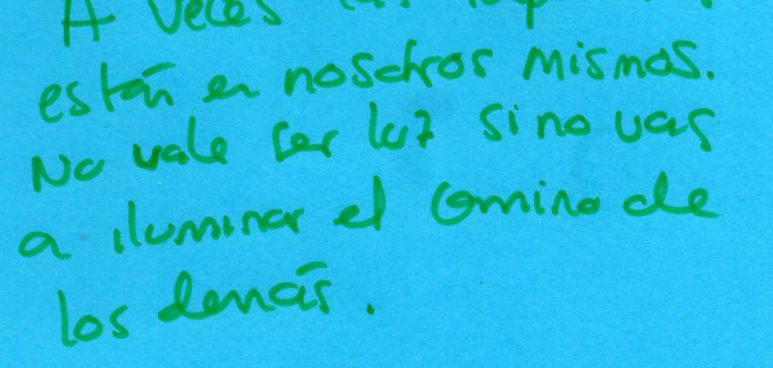 A veces
están en nosotros mismos.
No vale ser luz si no vas
a iluminar el camino de
los demás.